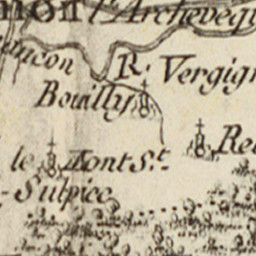 mont l'Archevêq
ançon
R. Vergign
Bouilly
Re
le Mont St.
-Sulpice